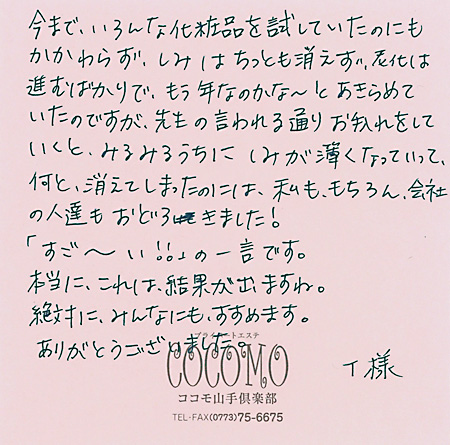 今まで、いろんな化粧品を試していたのにも
かかわらず、しみはちっとも消えず、老化は
進むばかりで、もう年なのかな〜とあきらめて
いたのですが、先生の言われる通りお手入れをして
いくと、みるみるうちにしみが薄くなっていって、
何と、消えてしまったのには、私も、もちろん、会社
の人達もおどろきました!
「すご〜い!!」の一言です。
本当に、これは、結果が出ますね。
絶対に、みんなにも、すすめます。
ありがとうございました。
プライベートエステ
COCOMO
T様
ココモ山手倶楽部
TEL・FAX(0773)75-6675